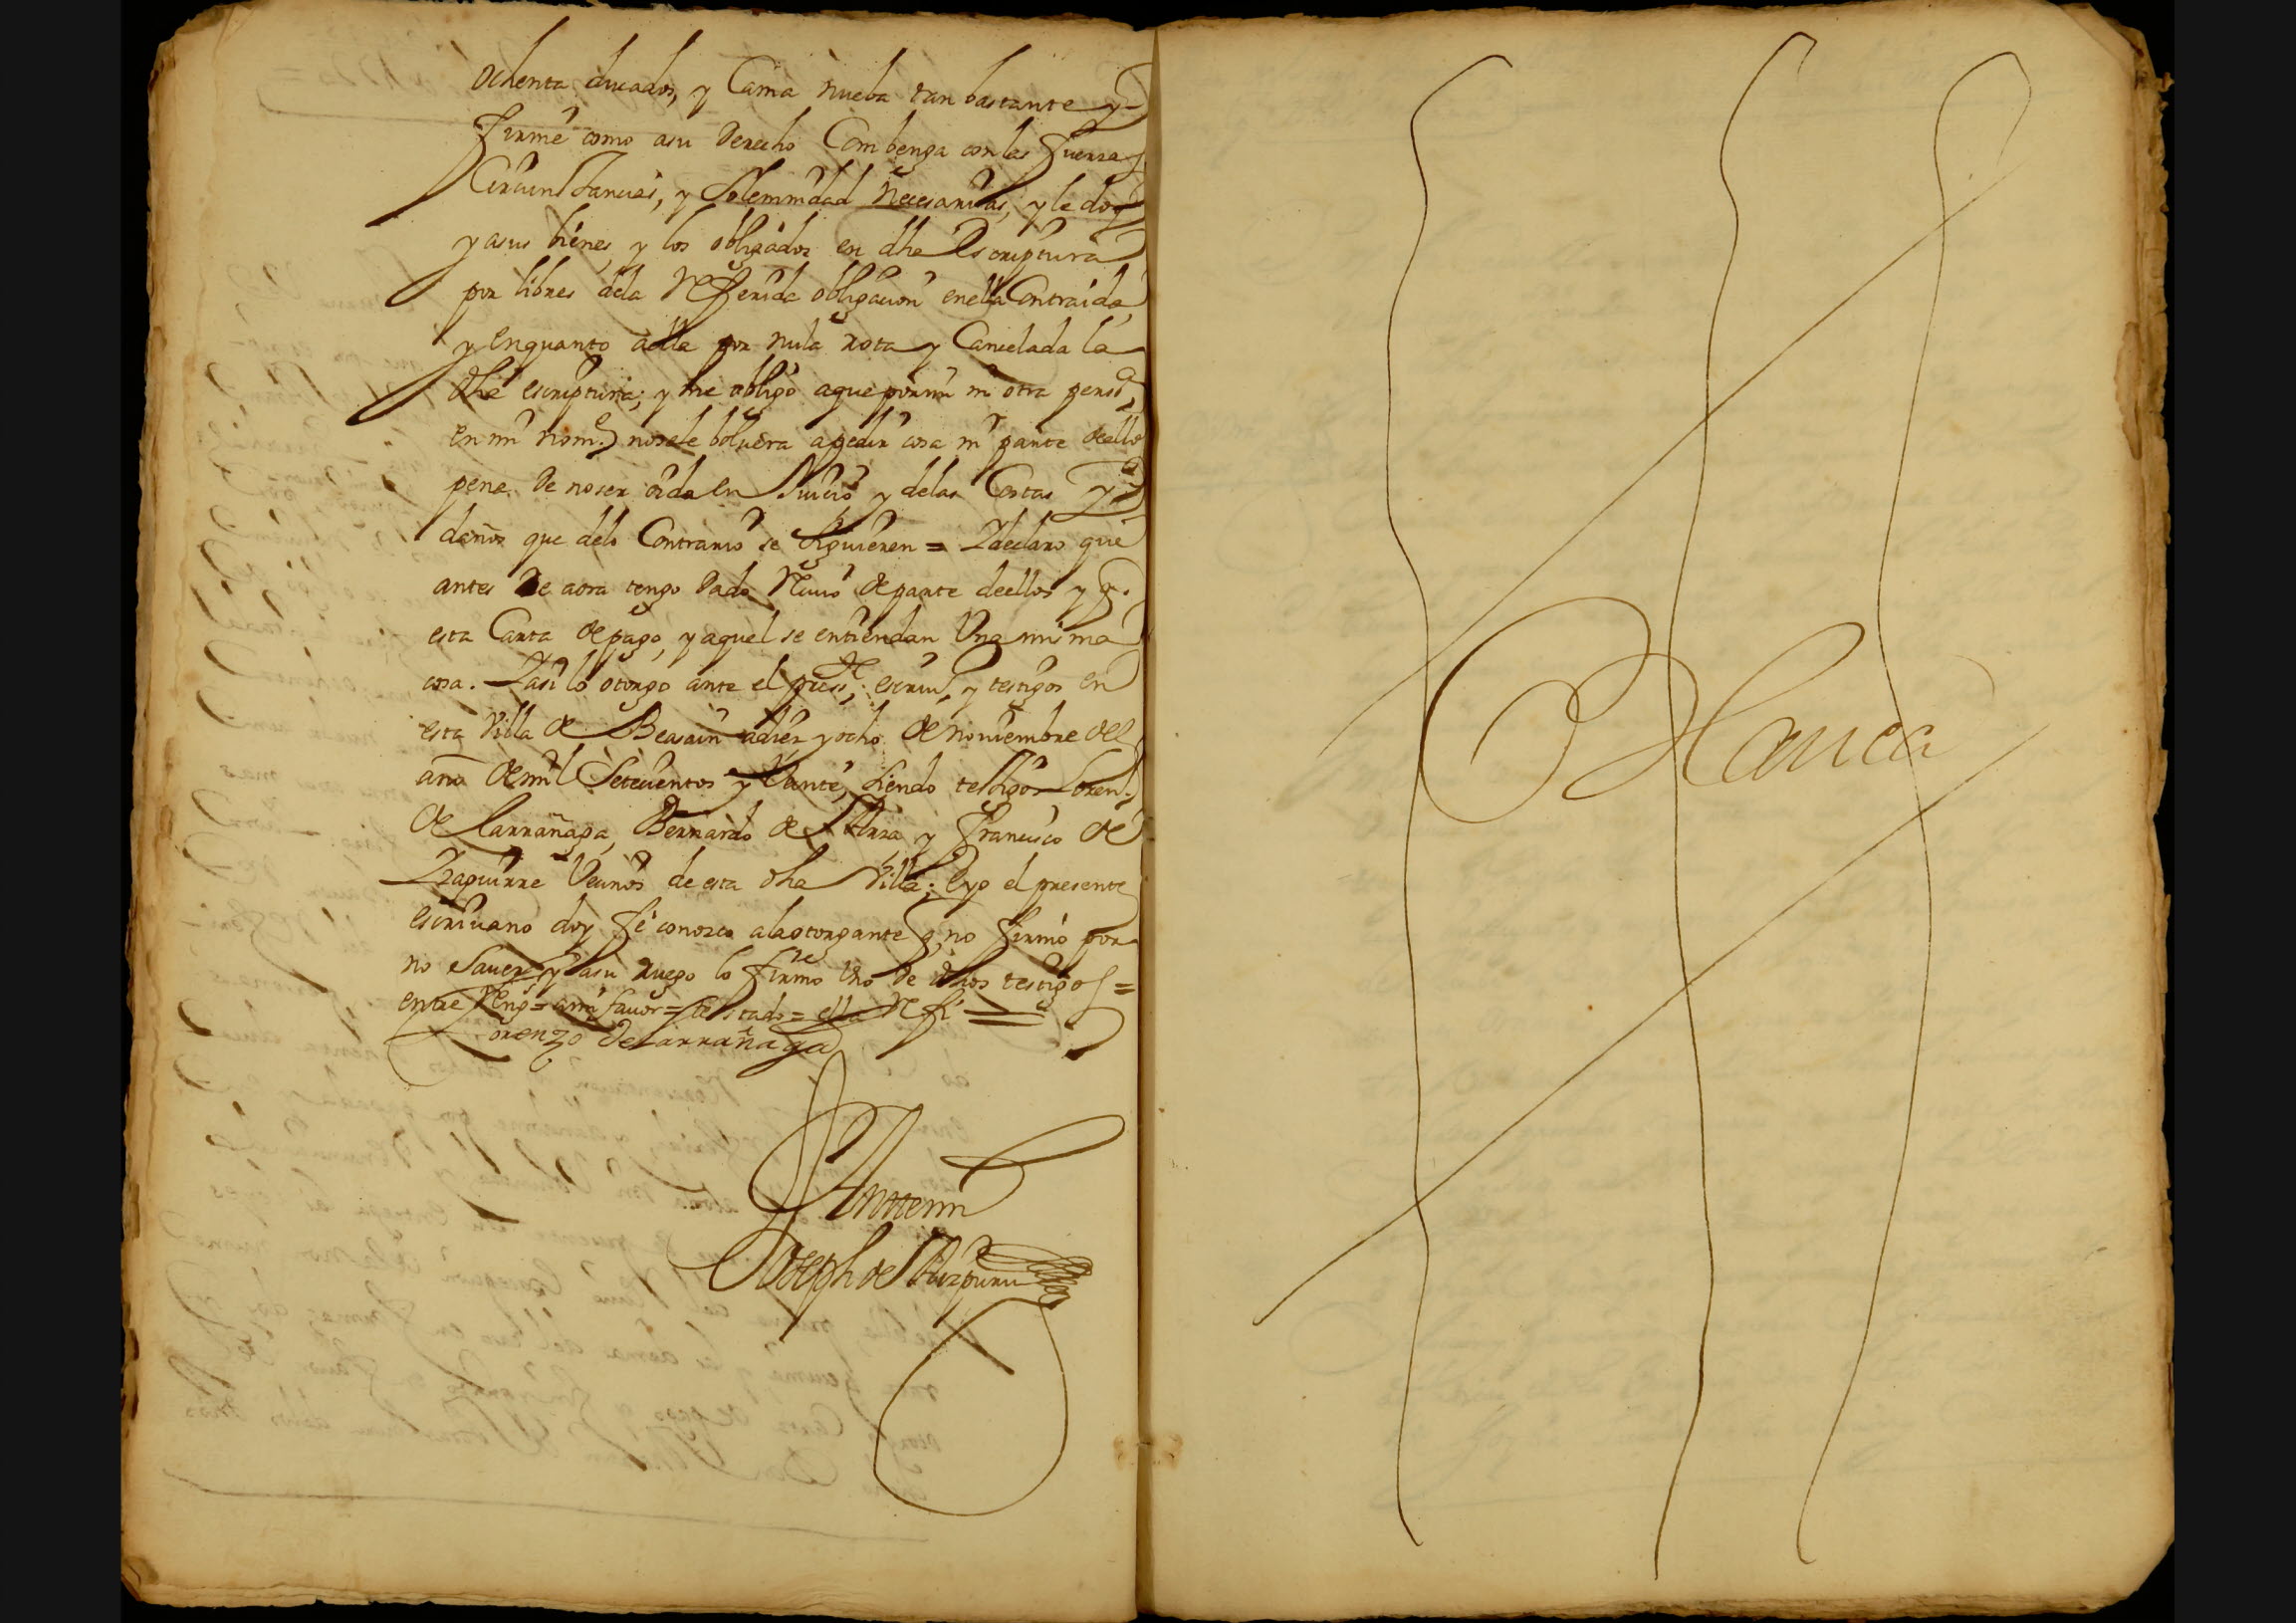 ochenta ducados, y Cama nueba tan bastante y
firme como asu derecho Combenga con las fuerzas
Circunstancias, y Solemnidad Necesarias, y le doy
y asus bienes, y los obligados en dha Escriptura
por libres dela Referida obligacion enella Contraida,
y enquanto aella por nula rota y Cancelada la
dha escriptura; y me obligo aque pormi ni otra perso.ª
en mi nom.e nosele boluera apedir cosa ni parte deello
pena de noser oida en Juicio y delas Costas y
daños que delo Contrario se siguieren = Y declaro que
antes de aora tengo dado Reciuo de parte deellos y q.
esta Carta de pago, y aquel se entiendan Una misma
cosa. Y asi lo otorgo ante el press.te escriu.º y testigos en
esta Villa de Beasain adiez y ocho de nouiembre del
año de mil Setecientos y Veinte, siendo testigos Loren.º
de Larrañaga, Bernardo de y Francisco de
Yzaguirre Vecinos de esta dha Villa; Eyo el presente
escriuano doy fé conozco alaotorgante q. no firmo por
no Sauer, y asu ruego lo firmo Uno de dhos testigos =
entre Reng.s = ami fauor = testado = ella
Lorenzo de Larrañaga
Antemi
Joseph de Aizpuru
Blanca